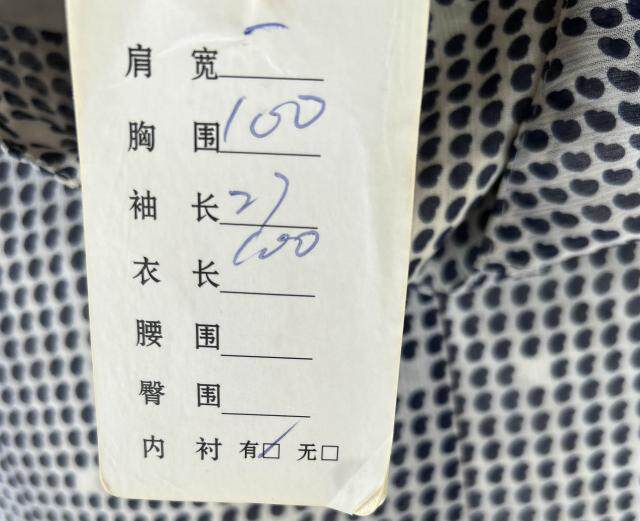 肩 宽
胸 围 100
袖 长 27
衣 长 100
腰 围
臀 围
内 衬 有☑ 无□